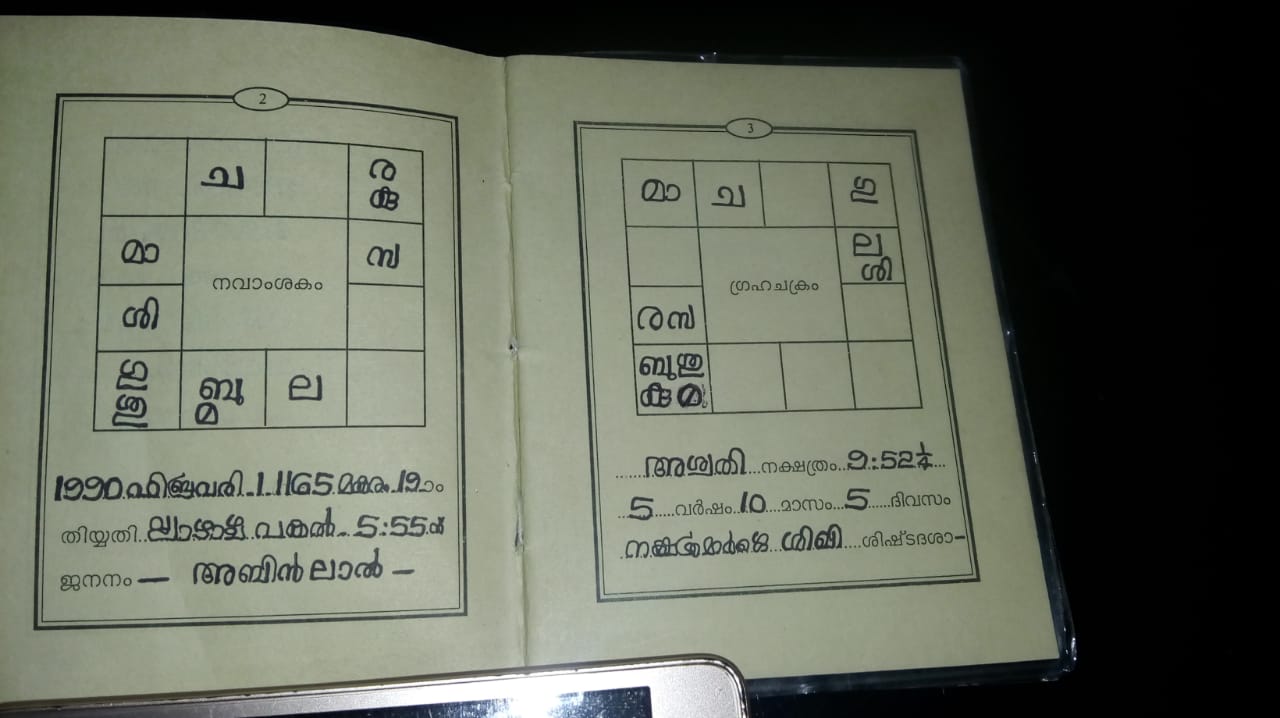 2
ച
ര
കു
മാ
സ
നവാംശകം
ശി
ഗു
ബു
മ
ല
1990 ഫിബ്രവരി 1 1165 മകരം 19 ാം
തിയ്യതി വ്യാഴാഴ്ച പകൽ 5:55 ന്
ജനനം — അബിൻ ലാൽ —
3
മാ
ച
ഗു
ല
ശി
ഗ്രഹചക്രം
ര സ
ബു ശു
കു മ
അശ്വതി നക്ഷത്രം 9:52¼
5 വർഷം 10 മാസം 5 ദിവസം
ശിഖി ശിഷ്ടദശാ—